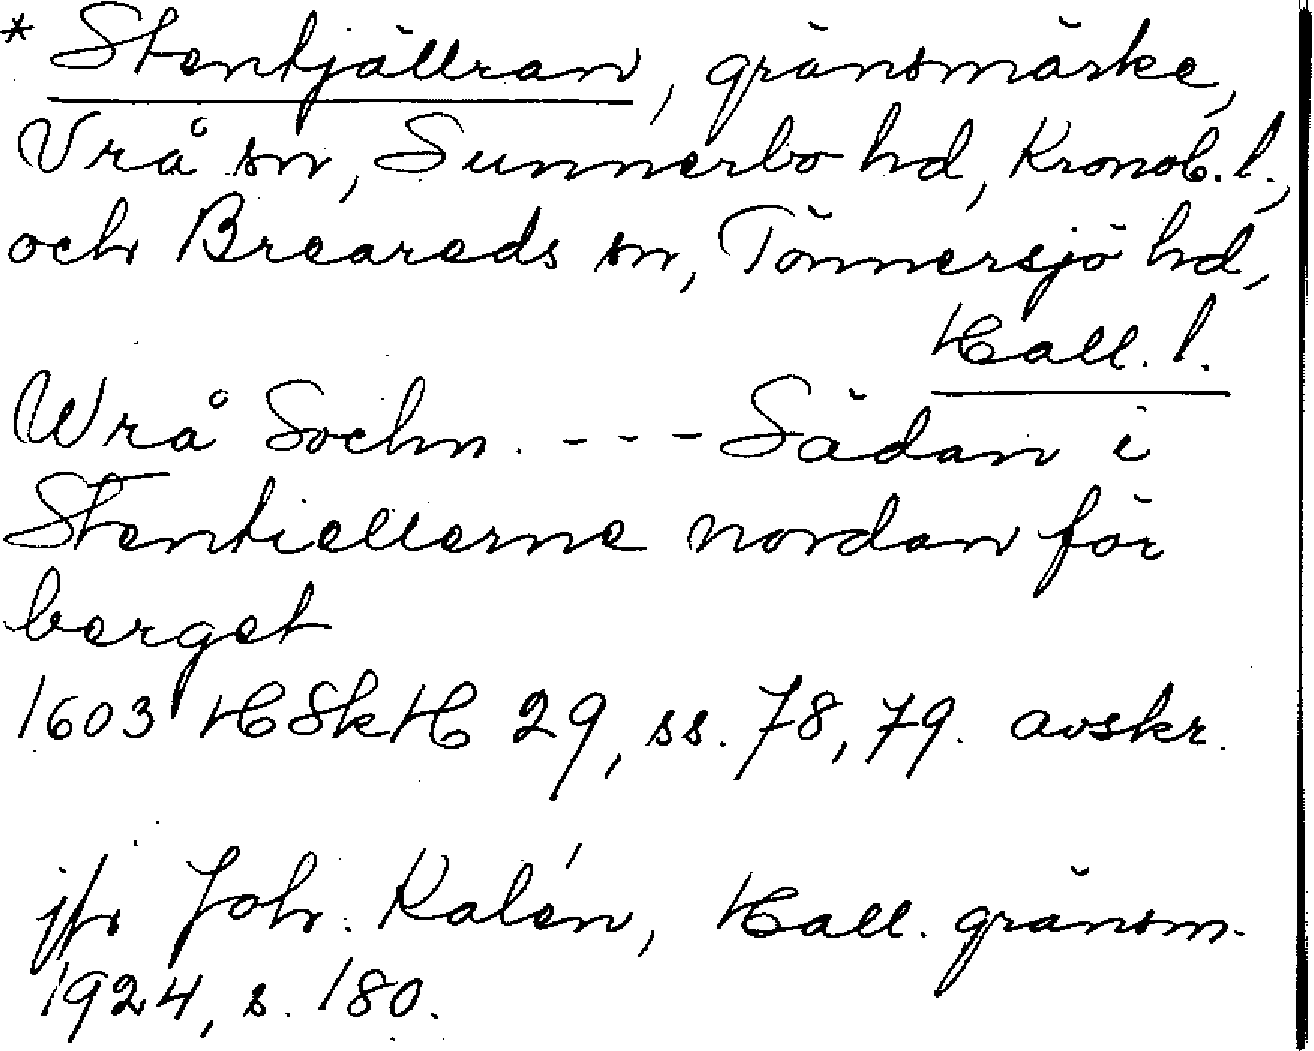 * Stentjällran, gränsmärke,
Vrå sn, Sunnerbo hd, Kronob. l.,
och Breareds sn, Tönnersjö hd,
Hall. l.
Wrå Sochn. - - - Sädan i
Stentiellerne nordan för
berget
1603 HSkH 29, ss. 78, 79. avskr.
jfr Joh. Kalén, Hall. gränsm.
1924, s. 180.